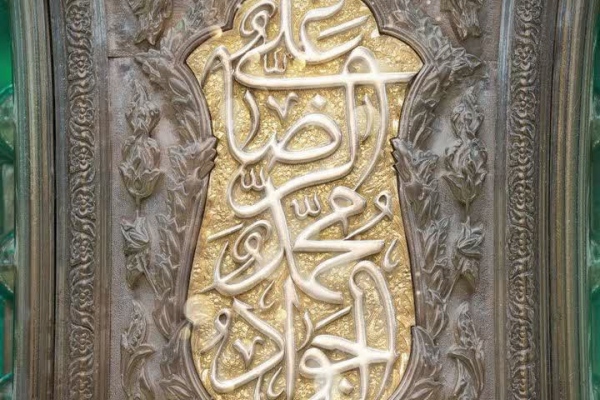 علي
الرضا
و محمد
الجواد